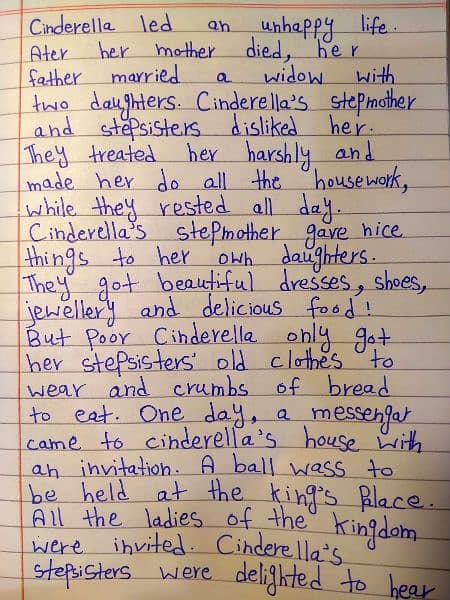 Cinderella led an unhappy life.
Ater her mother died, her
father married a widow with
two daughters. Cinderella's stepmother
and stepsisters disliked her.
They treated her harshly and
made her do all the housework,
while they rested all day.
Cinderella's stepmother gave nice
things to her own daughters.
They got beautiful dresses, shoes,
jewellery and delicious food!
But Poor Cinderella only got
her stepsisters' old clothes to
wear and crumbs of bread
to eat. One day, a messengar
came to cinderella's house with
an invitation. A ball wass to
be held at the king's Place.
All the ladies of the kingdom
were invited. Cinderella's
stepsisters were delighted to hear